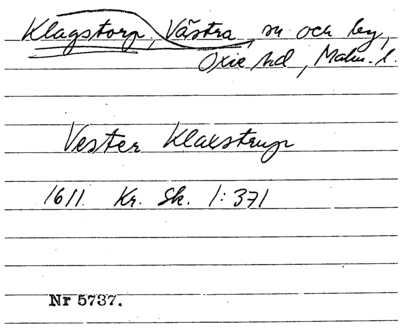 Klagstorp, Västra, sn och by,
Oxie hd, Malm. l.
Vester Klaxstrup
1611. Kr. Sk. 1:371
Nr 5737.